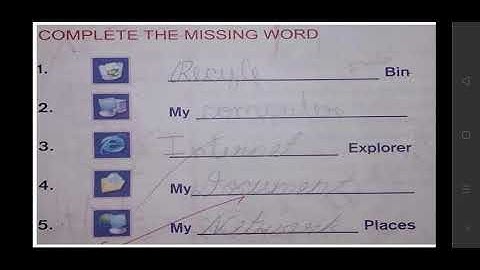 COMPLETE THE MISSING WORD
1. Recycle Bin
2. My computer
3. Internet Explorer
4. My Document
5. My Network Places